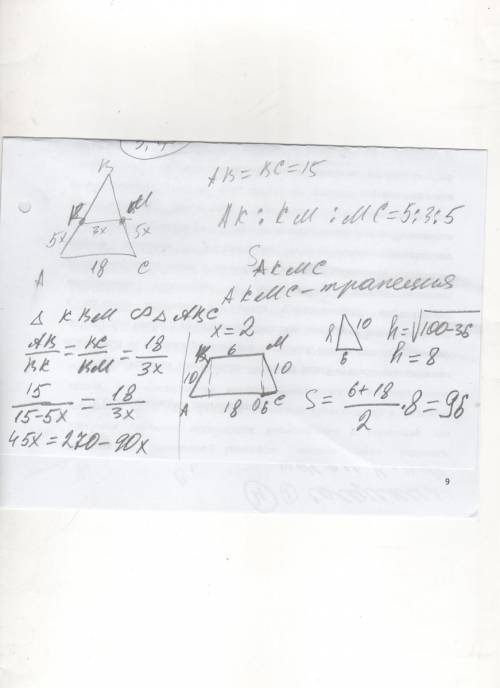 B
K
M
5x
3x
5x
A
18
C
AB = BC = 15
AK : KM : MC = 5:3:5
S AKMC
AKMC - трапеция
△ KBM ∞ △ ABC
AB/BK = BC/BM = 18/3x
15/15-5x = 18/3x
45x = 270 - 90x
x = 2
K
6
M
10
10
A
18
6
C
h
10
6
h = √100-36
h = 8
S = 6+18/2 · 8 = 96
9